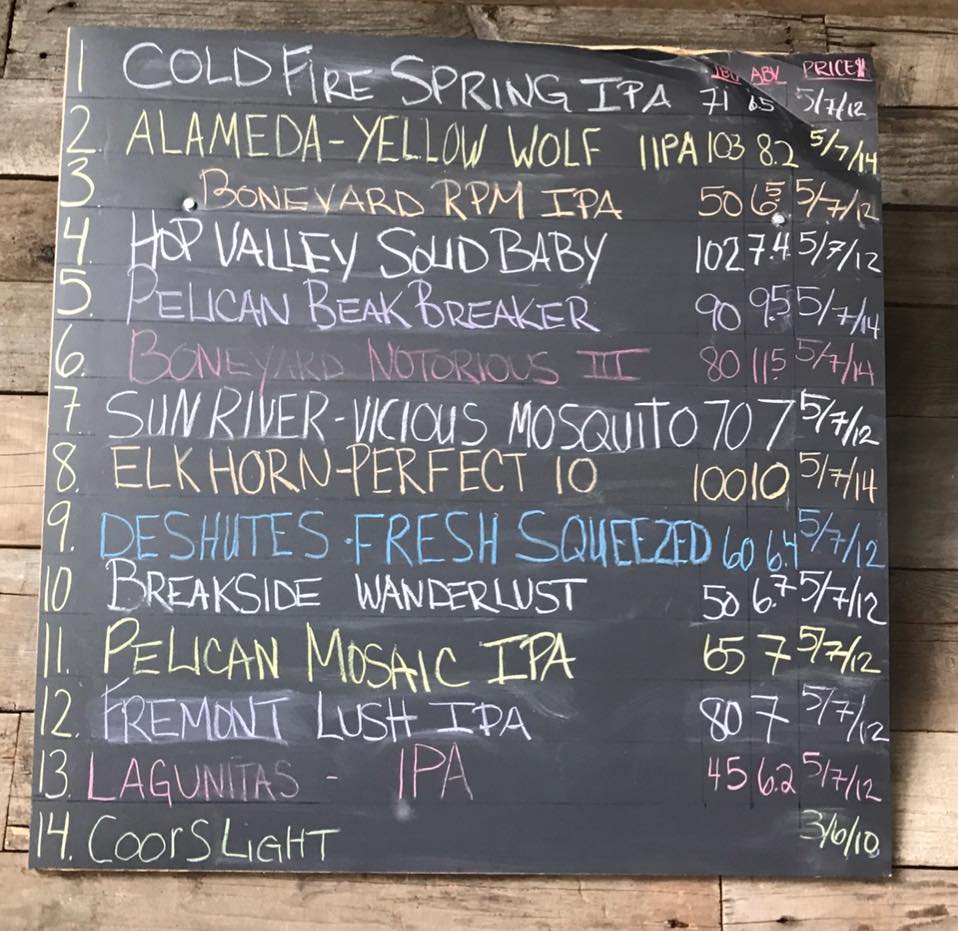 IBU ABV PRICE$
1 COLD FIRE SPRING IPA 71 6.5 5/7/12
2. ALAMEDA-YELLOW WOLF IIPA 103 8.2 5/7/14
3 BONEYARD RPM IPA 50 6.5 5/7/12
4. HOP VALLEY SOLID BABY 102 7.4 5/7/12
5. PELICAN BEAK BREAKER 90 9.5 5/7/14
6. BONEYARD NOTORIOUS III 80 11.5 5/7/14
7. SUN RIVER-VICIOUS MOSQUITO 70 7 5/7/12
8. ELKHORN-PERFECT 10 100 10 5/7/14
9. DESHUTES-FRESH SQUEEZED 60 6.4 5/7/12
10 BREAKSIDE WANDERLUST 50 6.7 5/7/12
11. PELICAN MOSAIC IPA 65 7 5/7/12
12. FREMONT LUSH IPA 80 7 5/7/12
13. LAGUNITAS - IPA 45 6.2 5/7/12
14. COORS LIGHT 3/6/10